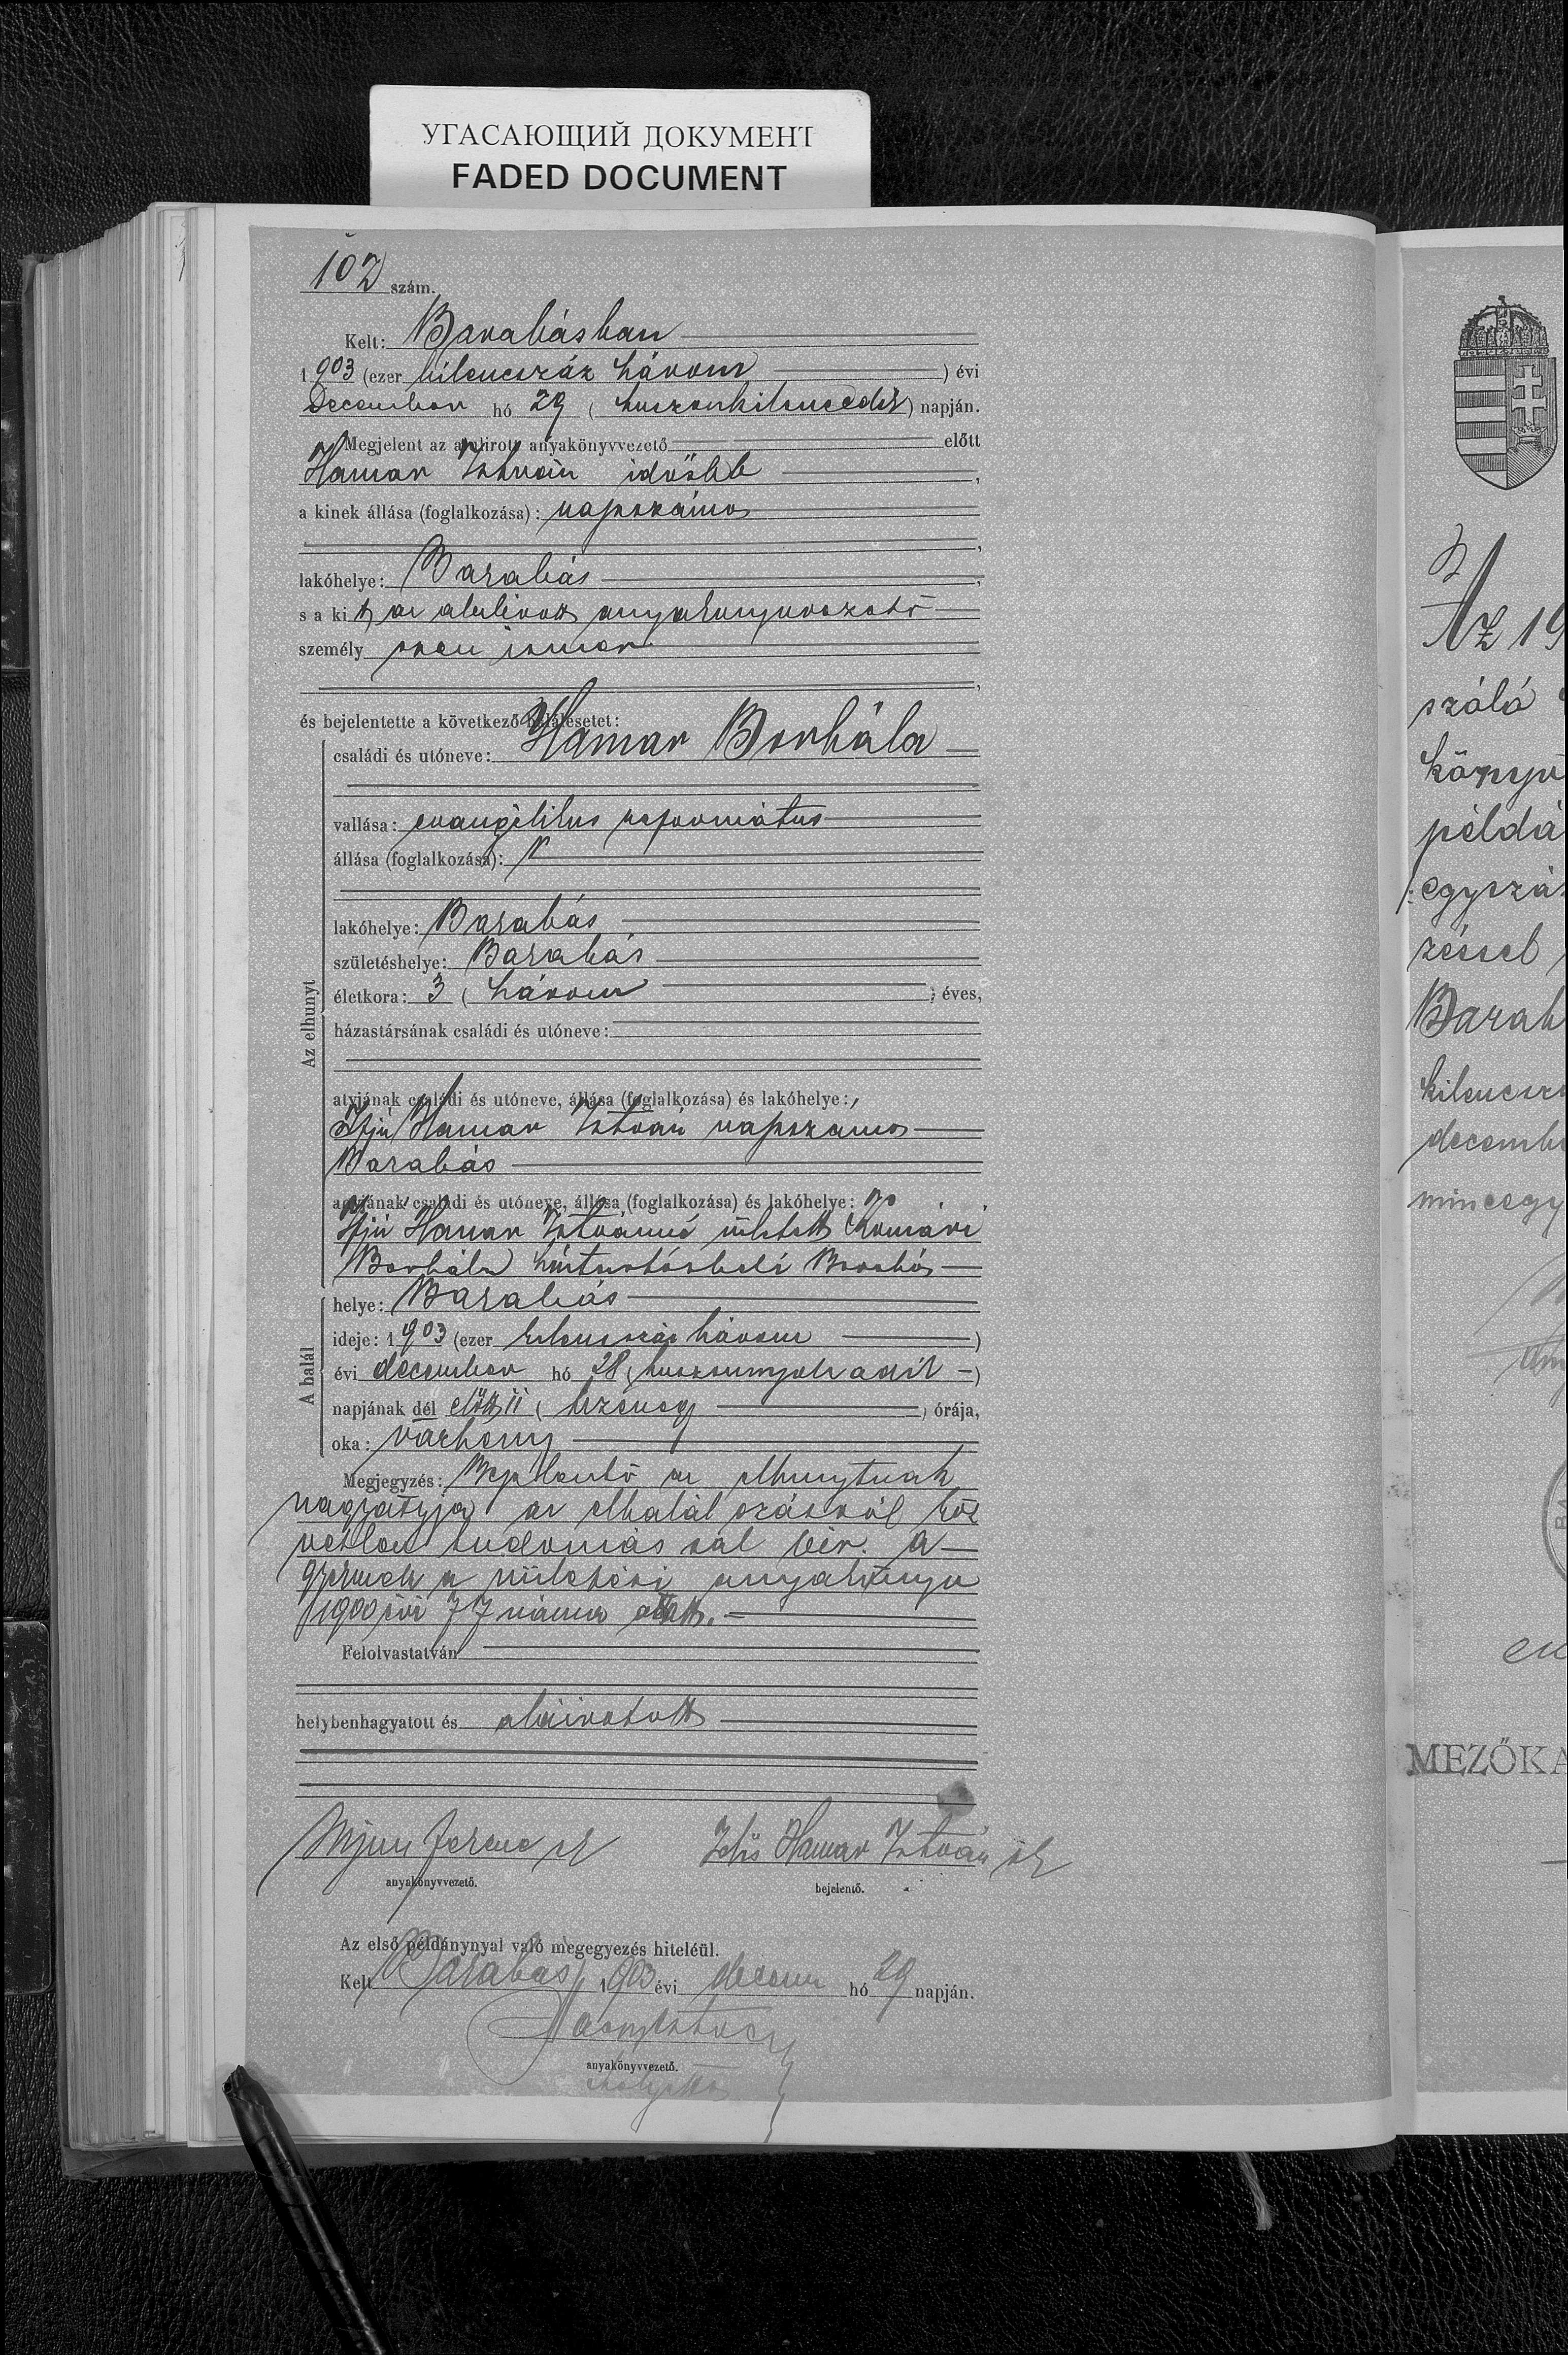 УГАСАЮЩИЙ ДОКУМЕНТ
FADED DOCUMENT
102 szám.
Kelt: Barabásban
1903 (ezer kilenczszáz három) évi
December hó 29 (huszonkilenczedik) napján.
Megjelent az alulirott anyakönyvvezető előtt
Hamar István idősbb,
a kinek állása (foglalkozása): napszámos
lakóhelye: Barabás,
s a kit az alulirott anyakönyvvezető
személy szen ismer
és bejelentette a következő halálesetet:
Az elhunyt
családi és utóneve: Hamar Borbála
vallása: evangélikus református
állása (foglalkozása):
lakóhelye: Barabás
születéshelye: Barabás
életkora: 3 (három) éves,
házastársának családi és utóneve:
atyjának családi és utóneve, állása (foglalkozása) és lakóhelye:
Ifjú Hamar István napszámos
Barabás
anyjának családi és utóneve, állása (foglalkozása) és lakóhelye:
Ifjú Hamar Istvánné született
Borbála háztartásbeli Barabás
A halál
helye: Barabás
ideje: 1903 (ezer kilenczszáz három)
évi december hó 28 (huszonnyolcadik)
napjának dél előtt 11 (tizenegy) órája,
oka: várheny
Megjegyzés: Bejelentő az elhunytnak
nagyatyja az elhalálozásról köz
vetlen tudomással bir. A
gyermek a születési anyakönyv
1900 évi 77 száma alatt.
Felolvastatván
helybenhagyatott és aláiratott
Ferenc
Idős Hamar István
anyakönyvvezető.
bejelentő.
Az első példánynyal való megegyezés hiteléül.
Kelt Barabás, 1903 évi decem hó 29 napján.
anyakönyvvezető.
Az 19
szóló
könyv
példá
egyszá
zéssel
Barab
kilencz
decemb
mincsgy
MEZŐKA